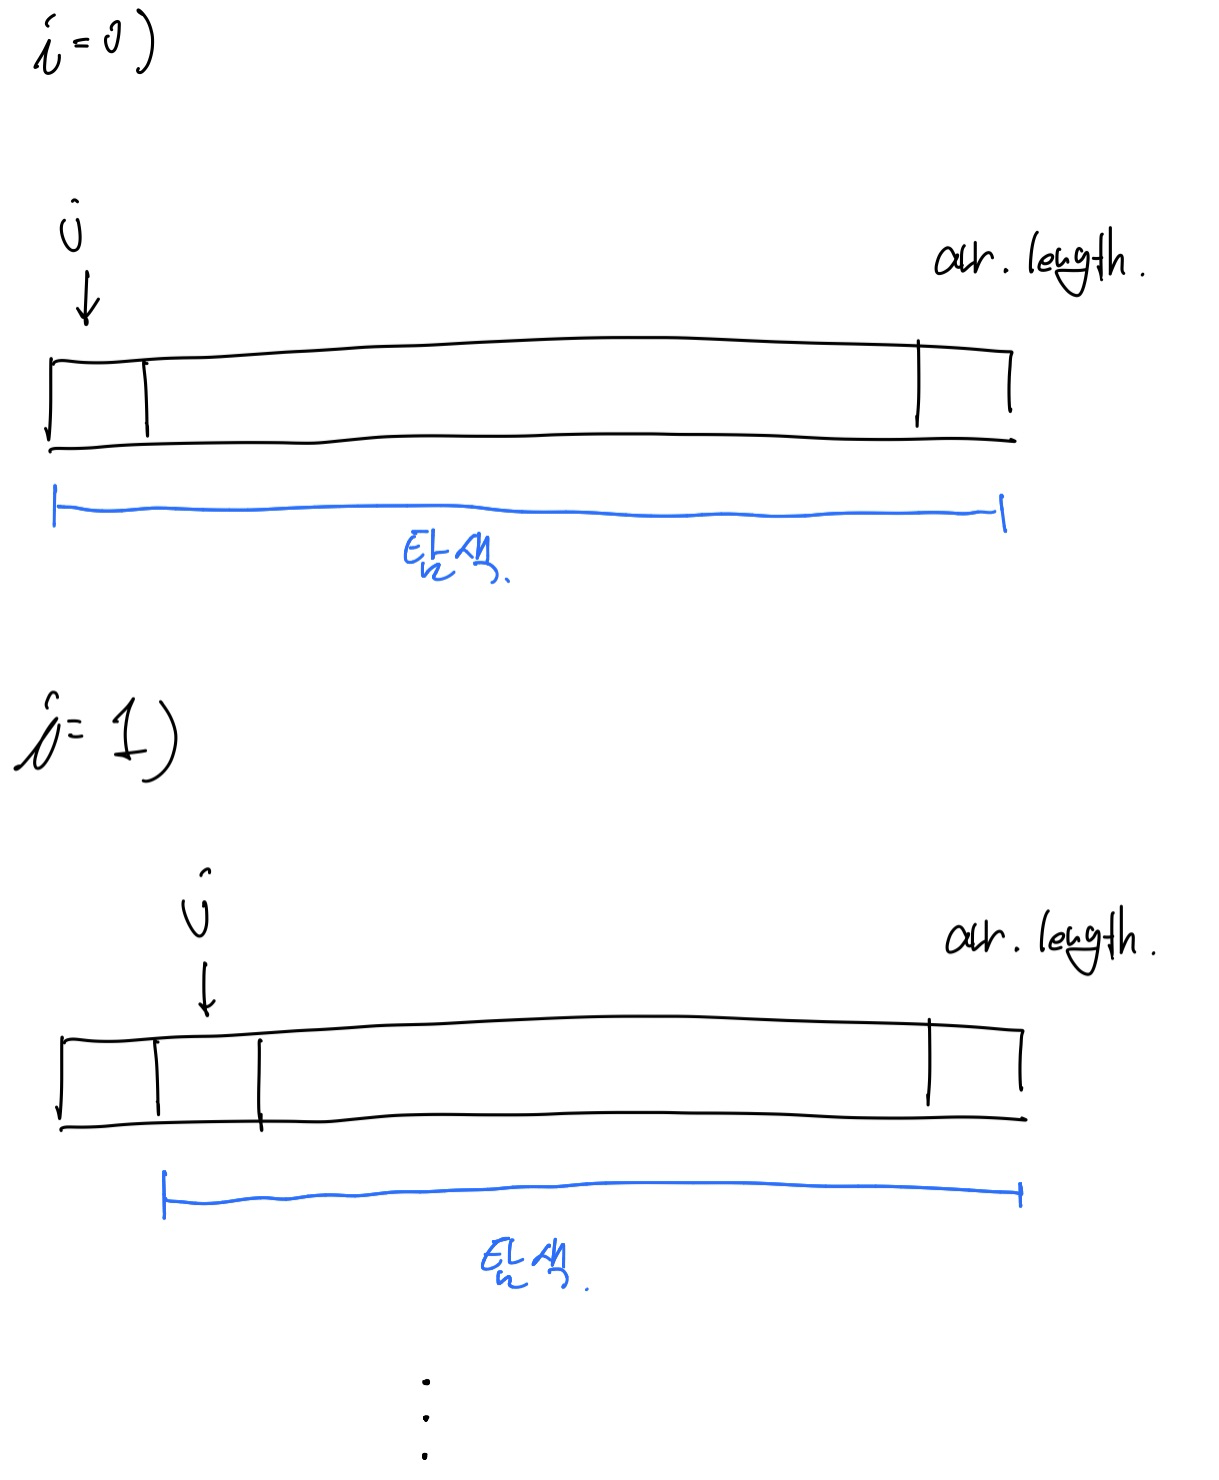 i=0)
i
arr.length.
탐색.
i=1)
i
arr.length.
탐색.